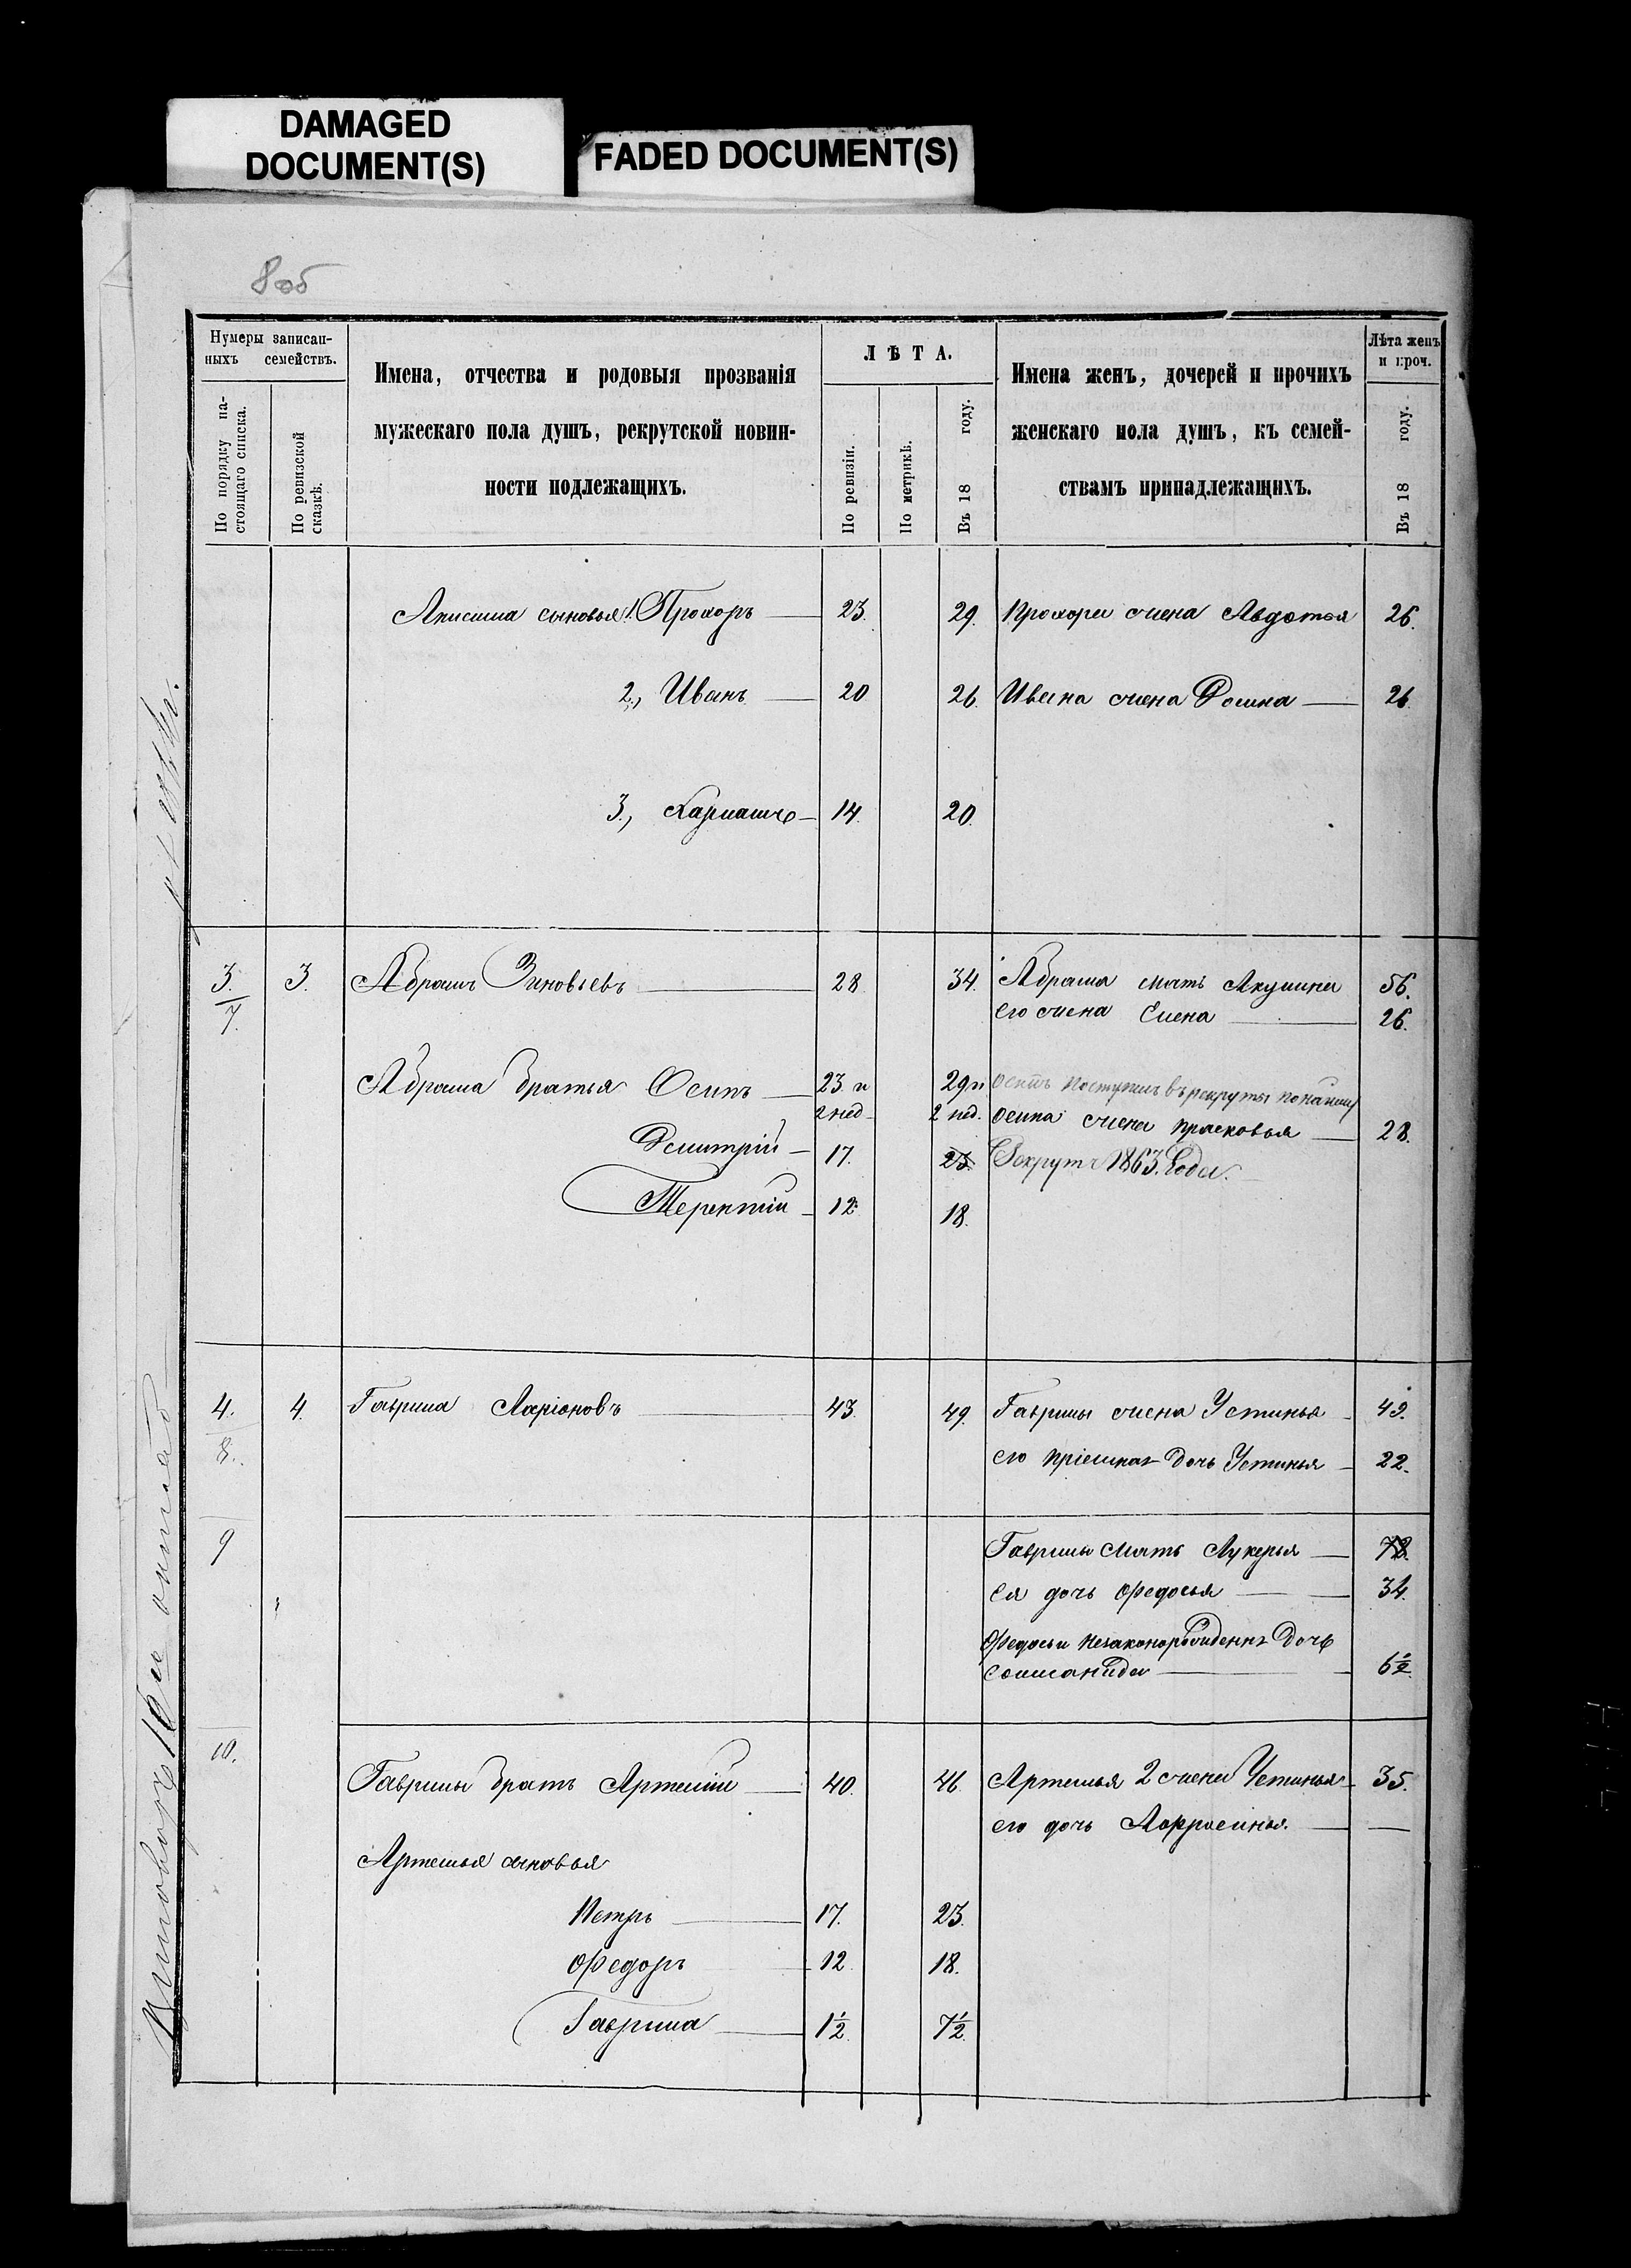 DAMAGED
DOCUMENT(S)
FADED DOCUMENT(S)
8 об
Нумеры записан-
ныхъ семействъ.
По порядку на-
стоящаго списка.
По ревизской
сказкѣ.
Имена, отчества и родовыя прозванія
мужескаго пола душъ, рекрутской повин-
ности подлежащихъ.
ЛѢТА.
По ревизіи.
По метрикѣ.
Въ 18 году.
Имена женъ, дочерей и прочихъ
женскаго пола душъ, къ семей-
ствамъ принадлежащихъ.
Лѣта женъ
и проч.
Въ 18 году.
Анисима сыновья 1. Прохоръ 23. 29. Прохора жена Авдотья 26.
2., Иванъ 20 26. Ивана жена Домна 26.
3., 14. 20.
3. 3. Абрамъ Зиновьевъ 28 34. Абрама мать Акулина 56.
7. его жена Елена 26.
Абрама братья Осипъ 23 и 29 и Осипъ поступилъ въ рекруты по найму
2 нед 2 нед. Осипа жена Прасковья 28.
Дмитрій 17. 23. Рекрутъ 1863. Года.
Терентій 12 18.
4. 4. Гаврила Ларіоновъ 43. 49. Гаврилы жена Устинья 49.
8. его пріемная дочь Устинья 22.
9 Гаврилы мать Лукерья 78.
ея дочь Федосья 34.
Федосьи незаконорожденн. дочь
6½
10. Гаврилы братъ Артемій 40. 46. Артемья 2 жена Устинья 35.
его дочь
Артемья сыновья
Петръ 17. 23.
Федоръ 12 18.
Гаврила 1½ 7½